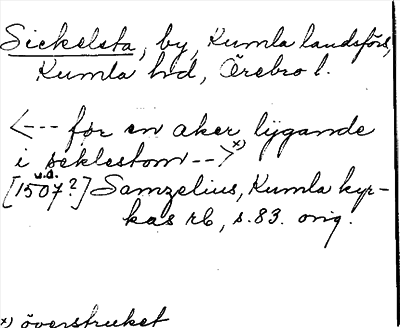 Sickelsta, by, Kumla landsförs,
Kumla hd, Örebro l.
<--- för en aker lygande
i seklestom --->x)
u.d.
[1507?] Samzelius, Kumla kyr-
kas rb, s. 83. orig.
x) överstruket